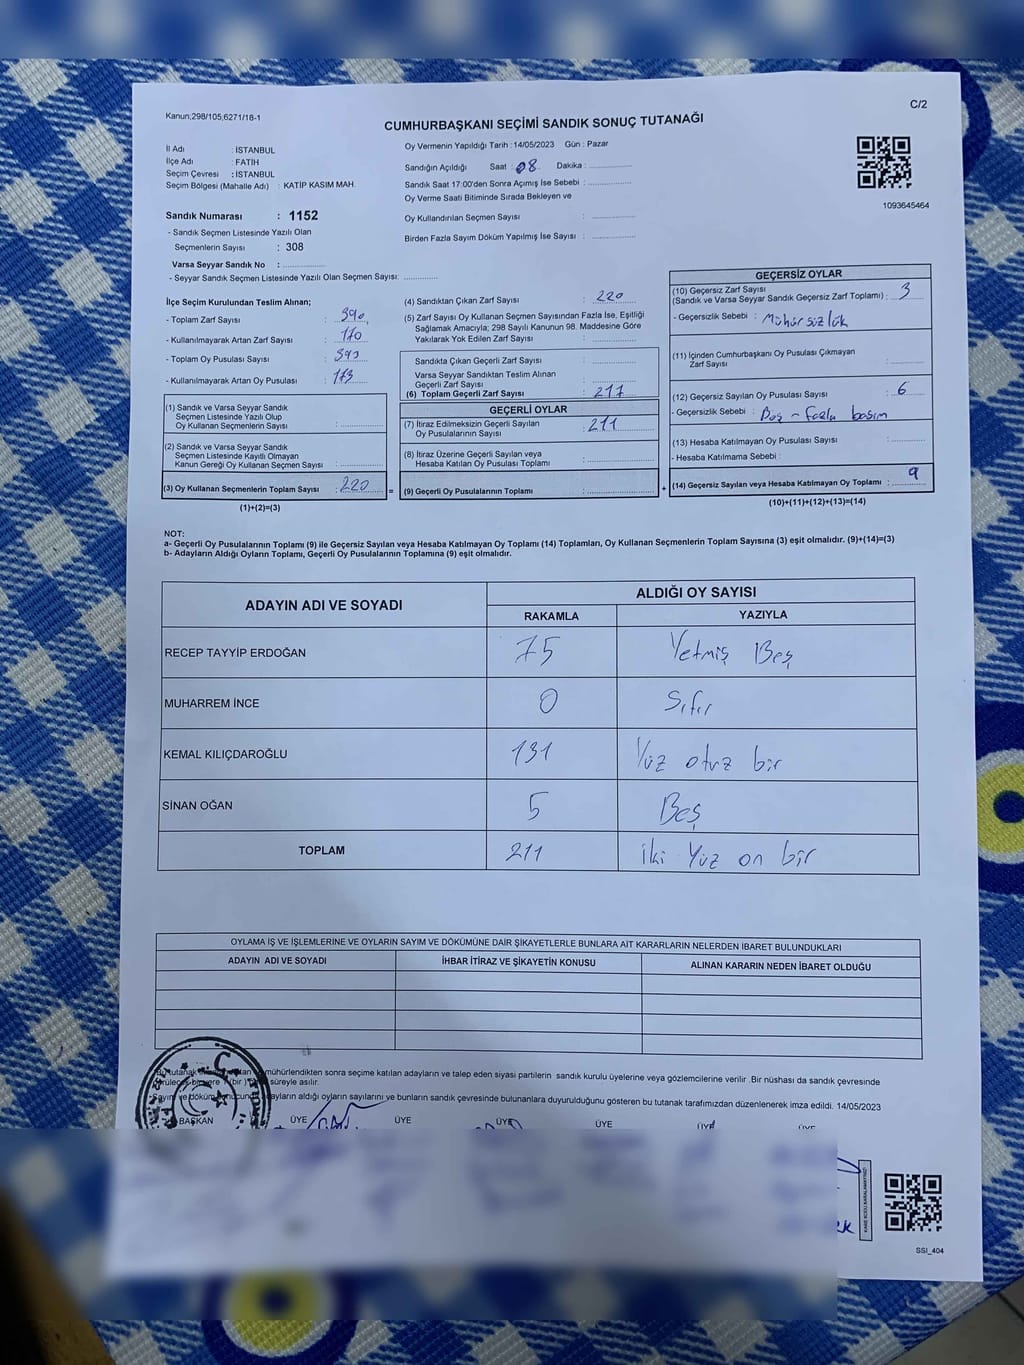 C/2
Kanun;298/105;6271/18-1
CUMHURBAŞKANI SEÇİMİ SANDIK SONUÇ TUTANAĞI
İl Adı : İSTANBUL
İlçe Adı : FATİH
Seçim Çevresi : İSTANBUL
Seçim Bölgesi (Mahalle Adı) : KATİP KASIM MAH.
Sandık Numarası : 1152
- Sandık Seçmen Listesinde Yazılı Olan
Seçmenlerin Sayısı : 308
Varsa Seyyar Sandık No :
- Seyyar Sandık Seçmen Listesinde Yazılı Olan Seçmen Sayısı:
Oy Vermenin Yapıldığı Tarih :14/05/2023 Gün : Pazar
Sandığın Açıldığı Saat : 08 Dakika :
Sandık Saat 17:00'den Sonra Açımış İse Sebebi :
Oy Verme Saati Bitiminde Sırada Bekleyen ve
Oy Kullandırılan Seçmen Sayısı :
Birden Fazla Sayım Döküm Yapılmış İse Sayısı :
1093645464
İlçe Seçim Kurulundan Teslim Alınan;
- Toplam Zarf Sayısı : 390
- Kullanılmayarak Artan Zarf Sayısı : 170
- Toplam Oy Pusulası Sayısı : 393
- Kullanılmayarak Artan Oy Pusulası : 173
(1) Sandık ve Varsa Seyyar Sandık
Seçmen Listesinde Yazılı Olup
Oy Kullanan Seçmenlerin Sayısı :
(2) Sandık ve Varsa Seyyar Sandık
Seçmen Listesinde Kayıtlı Olmayan
Kanun Gereği Oy Kullanan Seçmen Sayısı :
(3) Oy Kullanan Seçmenlerin Toplam Sayısı : 220 =
(1)+(2)=(3)
(4) Sandıktan Çıkan Zarf Sayısı : 220
(5) Zarf Sayısı Oy Kullanan Seçmen Sayısından Fazla İse, Eşitliği
Sağlamak Amacıyla; 298 Sayılı Kanunun 98. Maddesine Göre
Yakılarak Yok Edilen Zarf Sayısı :
Sandıkta Çıkan Geçerli Zarf Sayısı :
Varsa Seyyar Sandıktan Teslim Alınan
Geçerli Zarf Sayısı :
(6) Toplam Geçerli Zarf Sayısı : 217
GEÇERLİ OYLAR
(7) İtiraz Edilmeksizin Geçerli Sayılan
Oy Pusulalarının Sayısı : 211
(8) İtiraz Üzerine Geçerli Sayılan veya
Hesaba Katılan Oy Pusulası Toplamı :
(9) Geçerli Oy Pusulalarının Toplamı : +
GEÇERSİZ OYLAR
(10) Geçersiz Zarf Sayısı
(Sandık ve Varsa Seyyar Sandık Geçersiz Zarf Toplamı) : 3
- Geçersizlik Sebebi : Mühürsüzlük
(11) İçinden Cumhurbaşkanı Oy Pusulası Çıkmayan
Zarf Sayısı :
(12) Geçersiz Sayılan Oy Pusulası Sayısı : 6
- Geçersizlik Sebebi : Boş - Fazla basım
(13) Hesaba Katılmayan Oy Pusulası Sayısı :
- Hesaba Katılmama Sebebi :
(14) Geçersiz Sayılan veya Hesaba Katılmayan Oy Toplamı : 9
(10)+(11)+(12)+(13)=(14)
NOT:
a- Geçerli Oy Pusulalarının Toplamı (9) ile Geçersiz Sayılan veya Hesaba Katılmayan Oy Toplamı (14) Toplamları, Oy Kullanan Seçmenlerin Toplam Sayısına (3) eşit olmalıdır. (9)+(14)=(3)
b- Adayların Aldığı Oyların Toplamı, Geçerli Oy Pusulalarının Toplamına (9) eşit olmalıdır.
ADAYIN ADI VE SOYADI ALDIĞI OY SAYISI
RAKAMLA YAZIYLA
RECEP TAYYİP ERDOĞAN 75 Yetmiş Beş
MUHARREM İNCE 0 Sıfır
KEMAL KILIÇDAROĞLU 131 Yüz otuz bir
SİNAN OĞAN 5 Beş
TOPLAM 211 İki Yüz on bir
OYLAMA İŞ VE İŞLEMLERİNE VE OYLARIN SAYIM VE DÖKÜMÜNE DAİR ŞİKAYETLERLE BUNLARA AİT KARARLARIN NELERDEN İBARET BULUNDUKLARI
ADAYIN ADI VE SOYADI İHBAR İTİRAZ VE ŞİKAYETİN KONUSU ALINAN KARARIN NEDEN İBARET OLDUĞU
mühürlendikten sonra seçime katılan adayların ve talep eden siyasi partilerin sandık kurulu üyelerine veya gözlemcilerine verilir .Bir nüshası da sandık çevresinde
(bir) süreyle asılır.
aldığı oyların sayılarını ve bunların sandık çevresinde bulunanlara duyurulduğunu gösteren bu tutanak tarafımızdan düzenlenerek imza edildi. 14/05/2023
BAŞKAN ÜYE ÜYE ÜYE ÜYE ÜYE ÜYE
SSİ_404